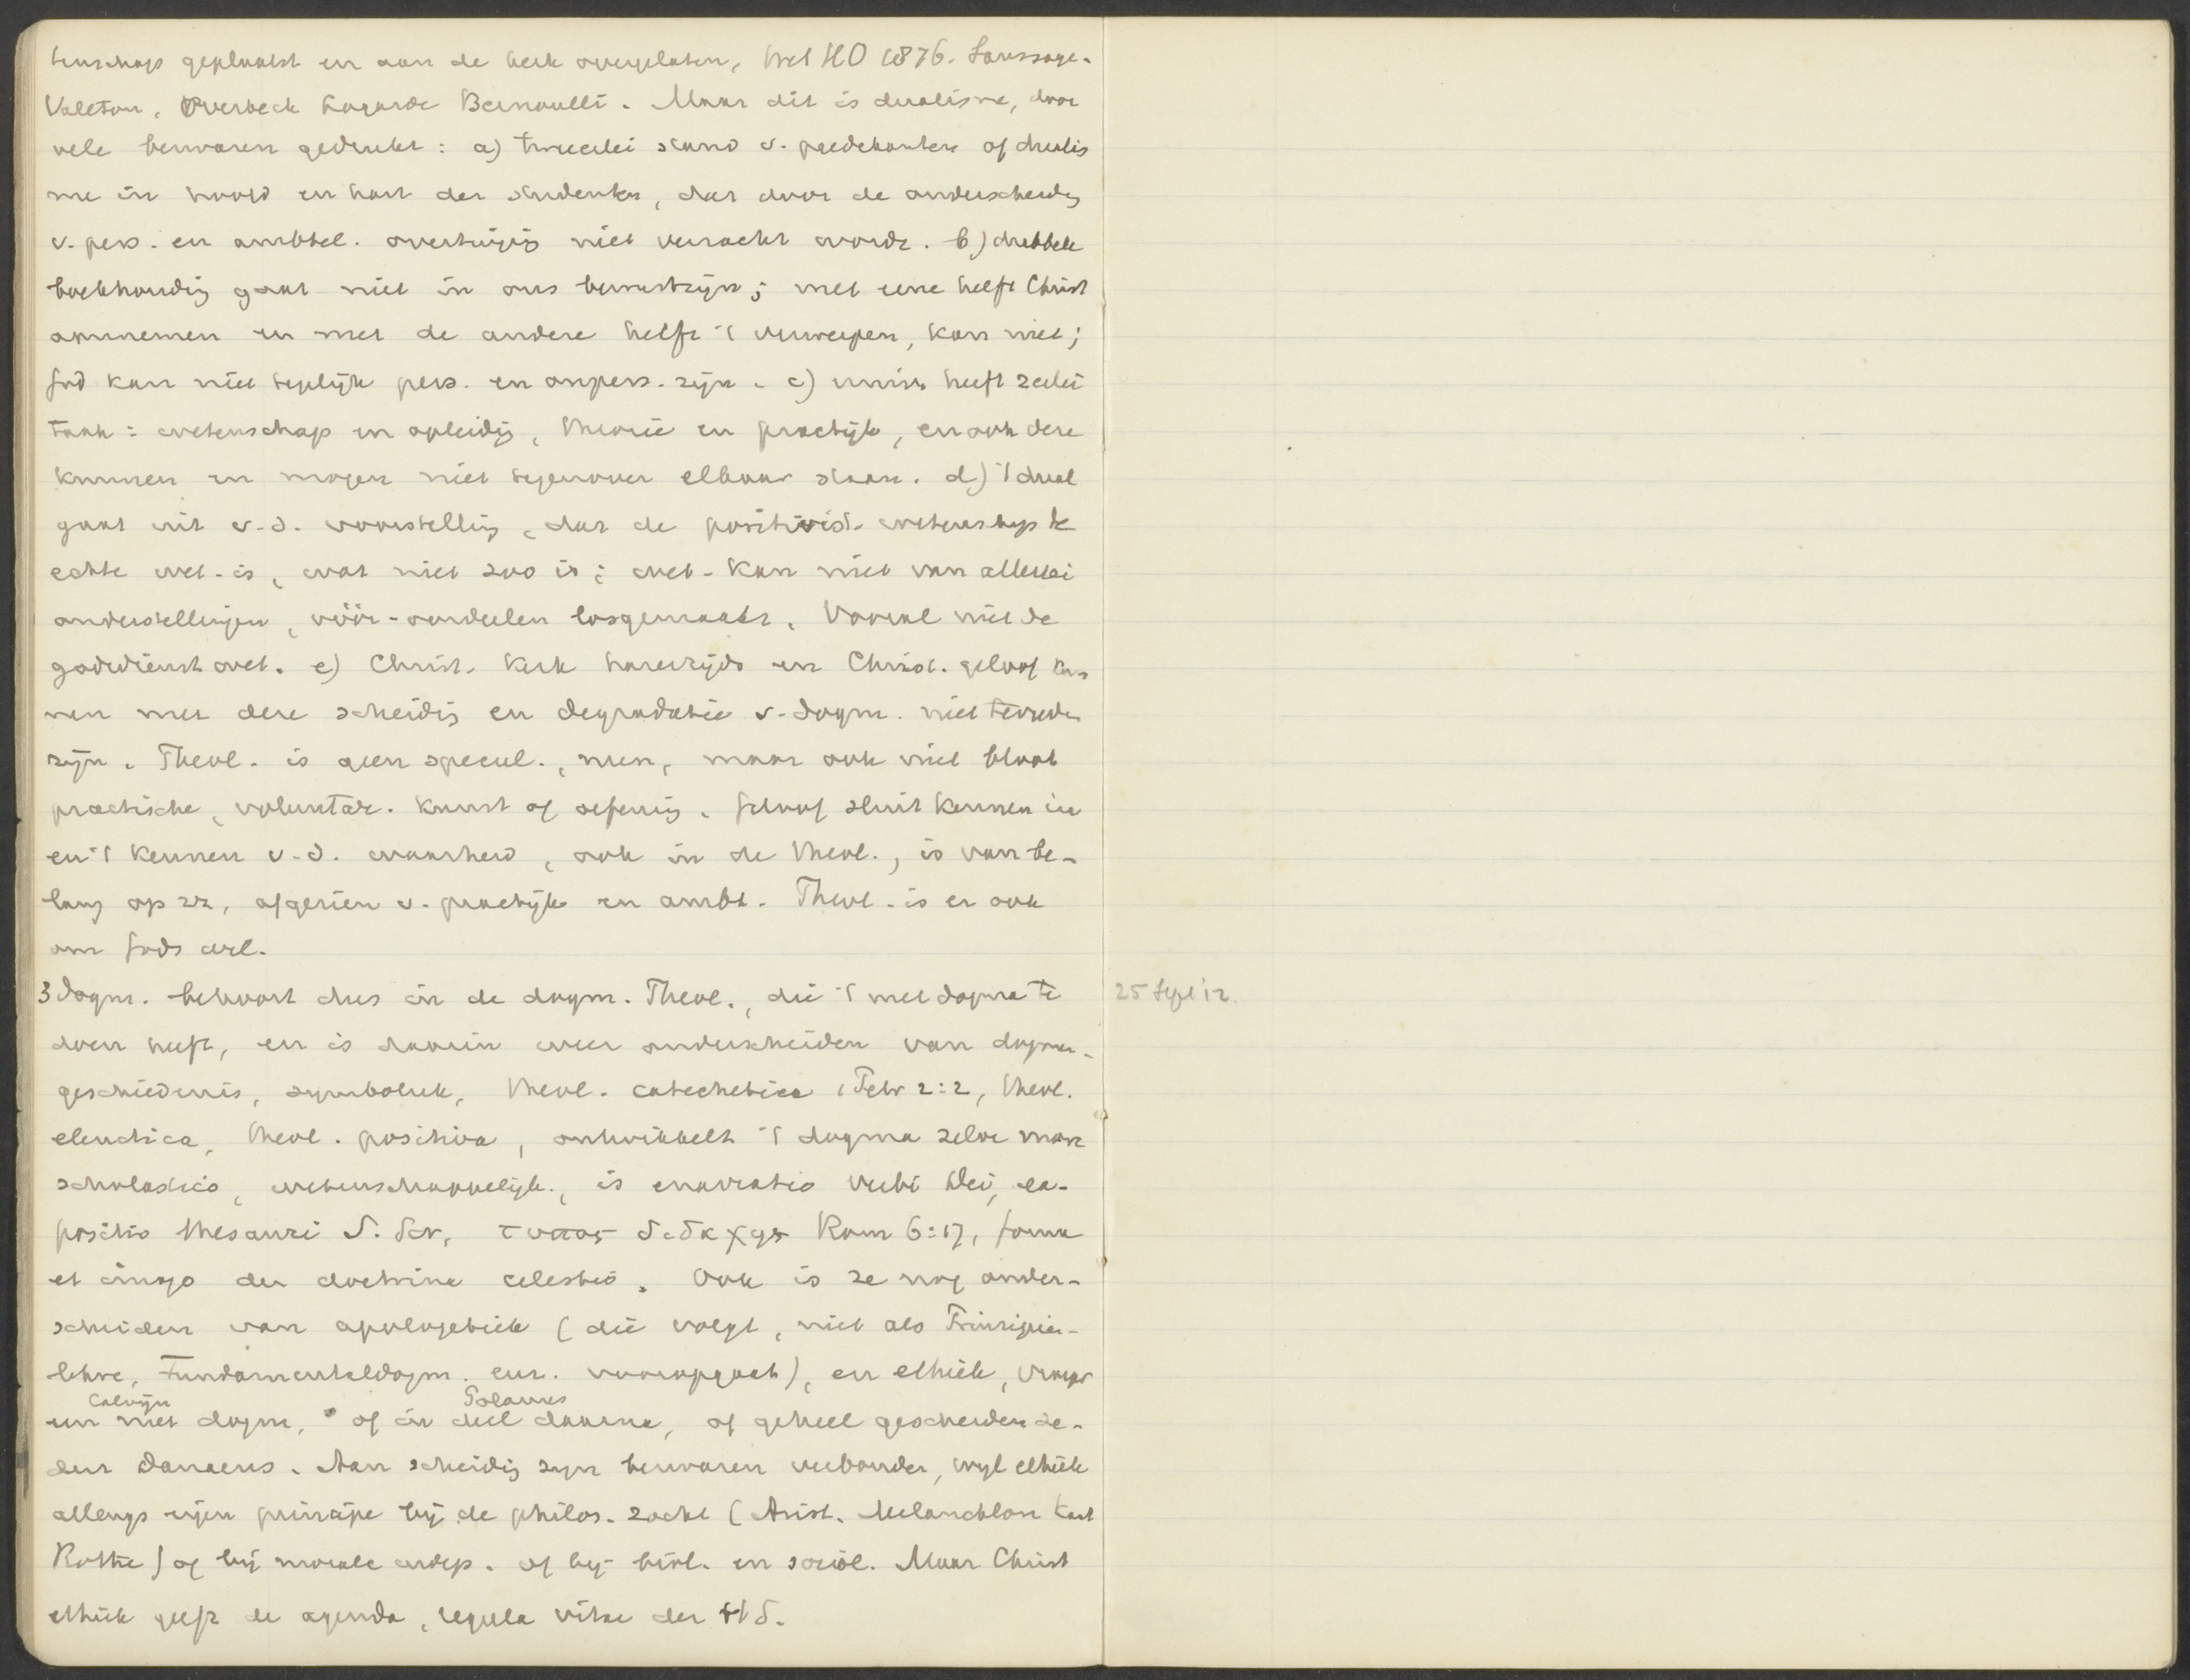 tenschap geplaatst en aan de kerk overgelaten, Wet HO 1876. Saussaye.
Valeton, Overbeck Lagarde Bernoulli. Maar dit is dualisme, door
vele bezwaren gedrukt: a) tweeërlei stand v. predikanten of dualis
me in hoofd en hart der studenten, dat door de onderscheidg
v. pers. en ambtel. overtuigg niet verzacht wordt. b) dubbele
boekhoudig gaat niet in ons bewustzijn; met eene helft Christ
aannemen en met de andere helft 't verwerpen, kan niet;
God kan niet tegelijk pers. en onpers. zijn. c) univ. heeft
taak: wetenschap en opleidig, theorie en practijk, en ook deze
kunnen en mogen niet tegenover elkaar staan. d) 't dual
gaat uit v.d. voorstellig, dat de positivist. wetenschap de
echte wet. is, wat niet zoo is; wet. kan niet van allerlei
onderstellingen, vóór-oordeelen losgemaakt. Vooral niet de
godsdienst wet. e) Christ. Kerk harerzijds en Christ. geloof kun
nen met deze scheidig en degradatie v. dogm. niet tevreden
zijn. Theol. is geen specul., neen, maar ook niet bloot
practische, voluntar. kunst of oefenig. Geloof sluit kennen in
en 't kennen v.d. waarheid, ook in de theol., is van be-
lang op zz, afgezien v. practijk en ambt. Theol. is er ook
om Gods wil.
3 Dogm. behoort dus in de dogm. Theol., die 't met dogma te
doen heeft, en is daarin weer onderscheiden van dogma-
geschiedenis, symboliek, theol. catechetica 1 Petr 2:2, theol.
elenctica, theol. positiva, ontwikkelt 't dogma zelve more
scholastico, wetenschappelijk, is enarratio verbi Dei, ex-
positio thesauri S. Scr, τυπος διδαχης Rom 6:17, forma
et imago der doctrina celestis. Ook is ze nog onder-
scheiden van apologetiek (die volgt, niet als Prinzipien-
lehre, Fundamentaldogm. enz. vooropgaat), en ethiek, vroeger
Calvijn Polanus
een met dogm, of in deel daarna, of geheel gescheiden se-
dert Danaeus. Aan scheidig zijn bezwaren verbonden, wijl ethiek
allengs eigen principe bij de philos. zocht (Arist. Melanchton Kant
Rothe) of bij morale indep. of bij biol. en sociol. Maar Christ
ethiek geeft de agenda, regula vitae der HS.
25 Sept '12.